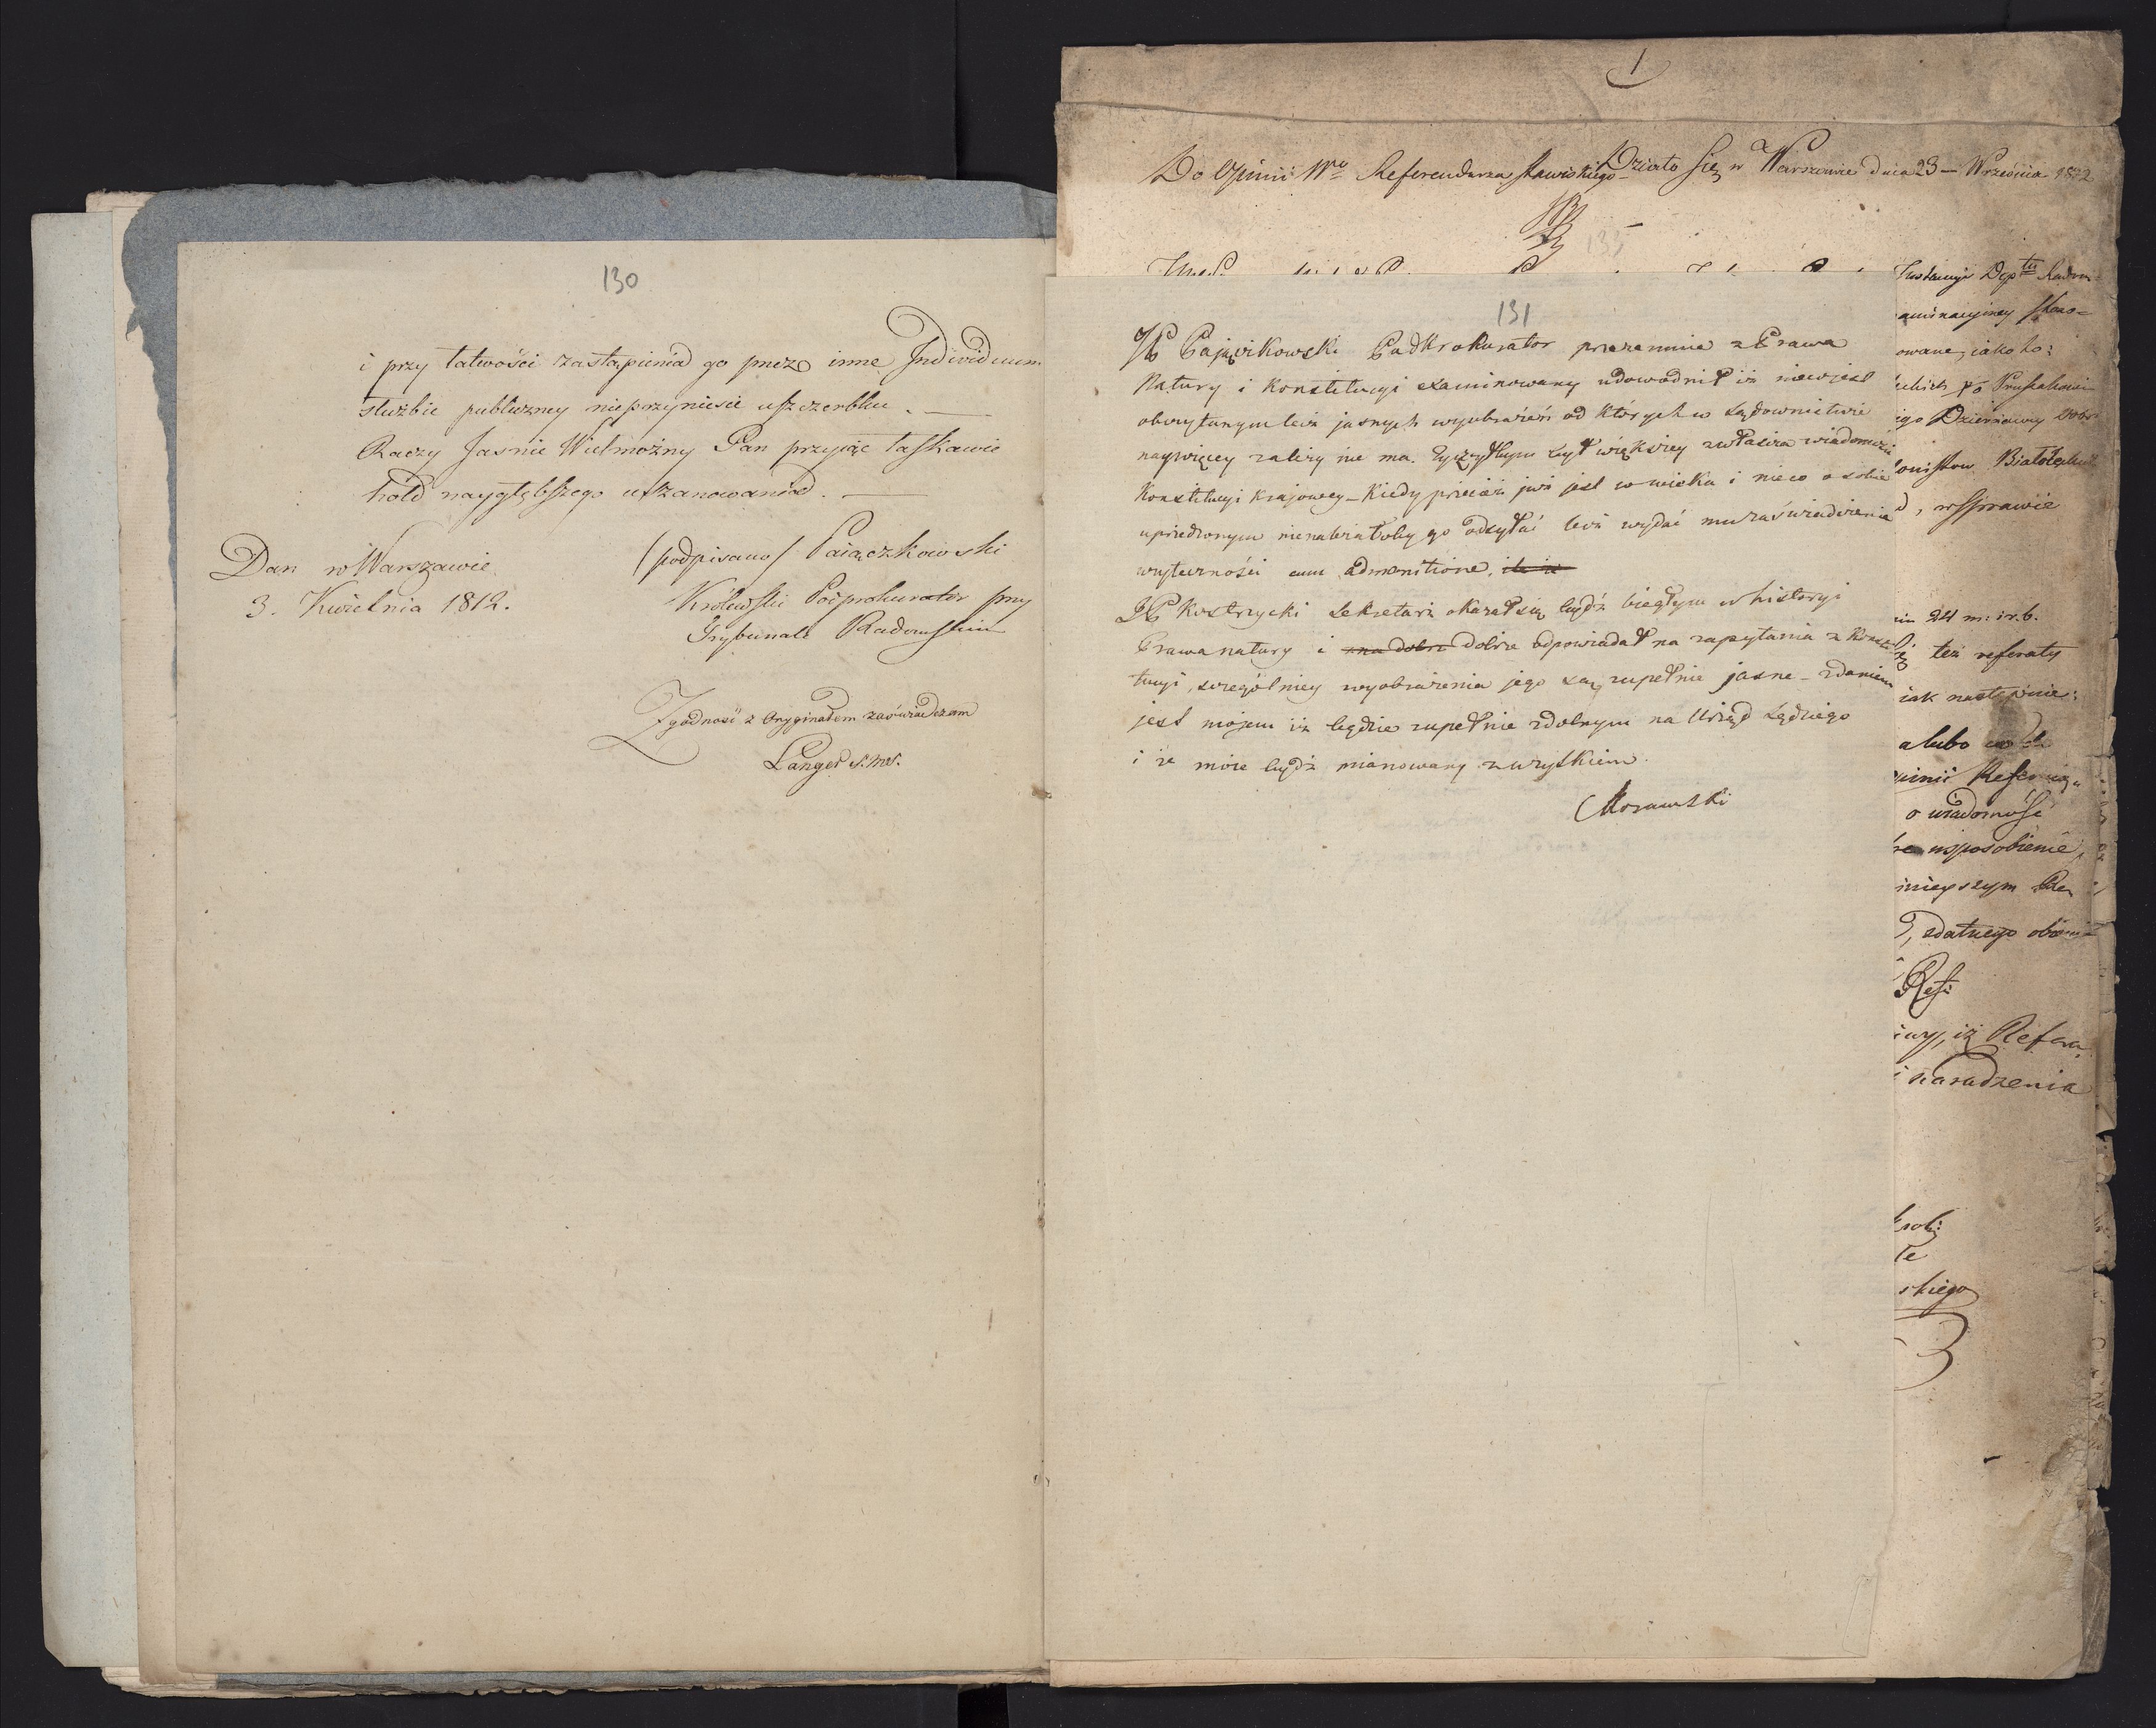 130
i przy łatwości zastąpienia go przez inne Individuum
służbie publiczney nieprzyniesie uszczerbku. —
Raczy Jaśnie Wielmożny Pan przyiąć łaskawie
hołd naygłębszego uszanowania. —
Dan w Warszawie
3. Kwietnia 1812.
(podpisano) Paiączkowski
Królewski Podprokurator przy
Trybunale Radomskim
Zgodność z Oryginałem zaświadczam
Langer
1
Do Opinii Wgo Referendarza Stawiskiego
Działo się w Warszawie dnia 23 — Września 1812
131
JP Pajączkowski Podprokurator przezemnie z Prawa
Natury i Konstitucyi examinowany udowodnił iż niewjest
obczytanym lecz jasnych wyobrażeń od których w Sądownictwie
naywięcey zależy nie ma. Życzyłbym był większey zwłaszcza wiadomości
Konstitucyi krajowey – Kiedy przecież już jest w wieku i nieco o sobie
uprzedzonym nienależałoby go odsyłać lecz wydać mu zaświadczenie
użyteczności cum admonitione.
JP Kostrzycki Sekretarz okazał się bydź biegłym w historyi
Prawa natury i zna dobrze dobrze odpowiadał na zapytania z Konsti
tucyi, szczególniey wyobrażenia jego są zupełnie jasne – zdaniem
jest mojem iż będzie zupełnie zdolnym na Urząd Sędziego
i że może bydź mianowany z wszystkiem.
Morawski
Instancyi Dep tu Radom
aminacyiney złożo=
owane, iako to:
igo Dzierżawcy Dobr
, w Sprawie
24 m: i r. b.
też referaty
iak następuie:
alubo
pinii Referuią
o wiadomość
usposobienie,
mnieyszym
, zdatnego
Ref:
iwy, iż Refera
i naradzenia
skiego